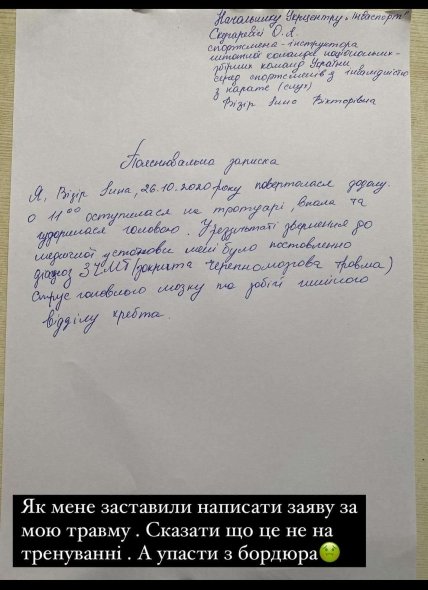 Начальнику Укрцентру „Інваспорт"
О. А.
спортсмена-інструктора
штатної команди національних
збірних команд України
серед спортсменів з інвалідністю
з карате (слух)
Візір Інна Вікторівна
Пояснювальна записка
Я, Візір Інна, 26.10.2020 року поверталася додому.
о 11⁰⁰ оступилася на тротуарі, впала та
ударилася головою. У результаті звернення до
медичної установи мені було поставленно
діагноз ЗЧМТ (закрита черепномозгова травма)
струс головного мозку та забій шийного
відділу хребта.
Як мене заставили написати заяву за
мою травму . Сказати що це не на
тренуванні . А упасти з бордюра🤢